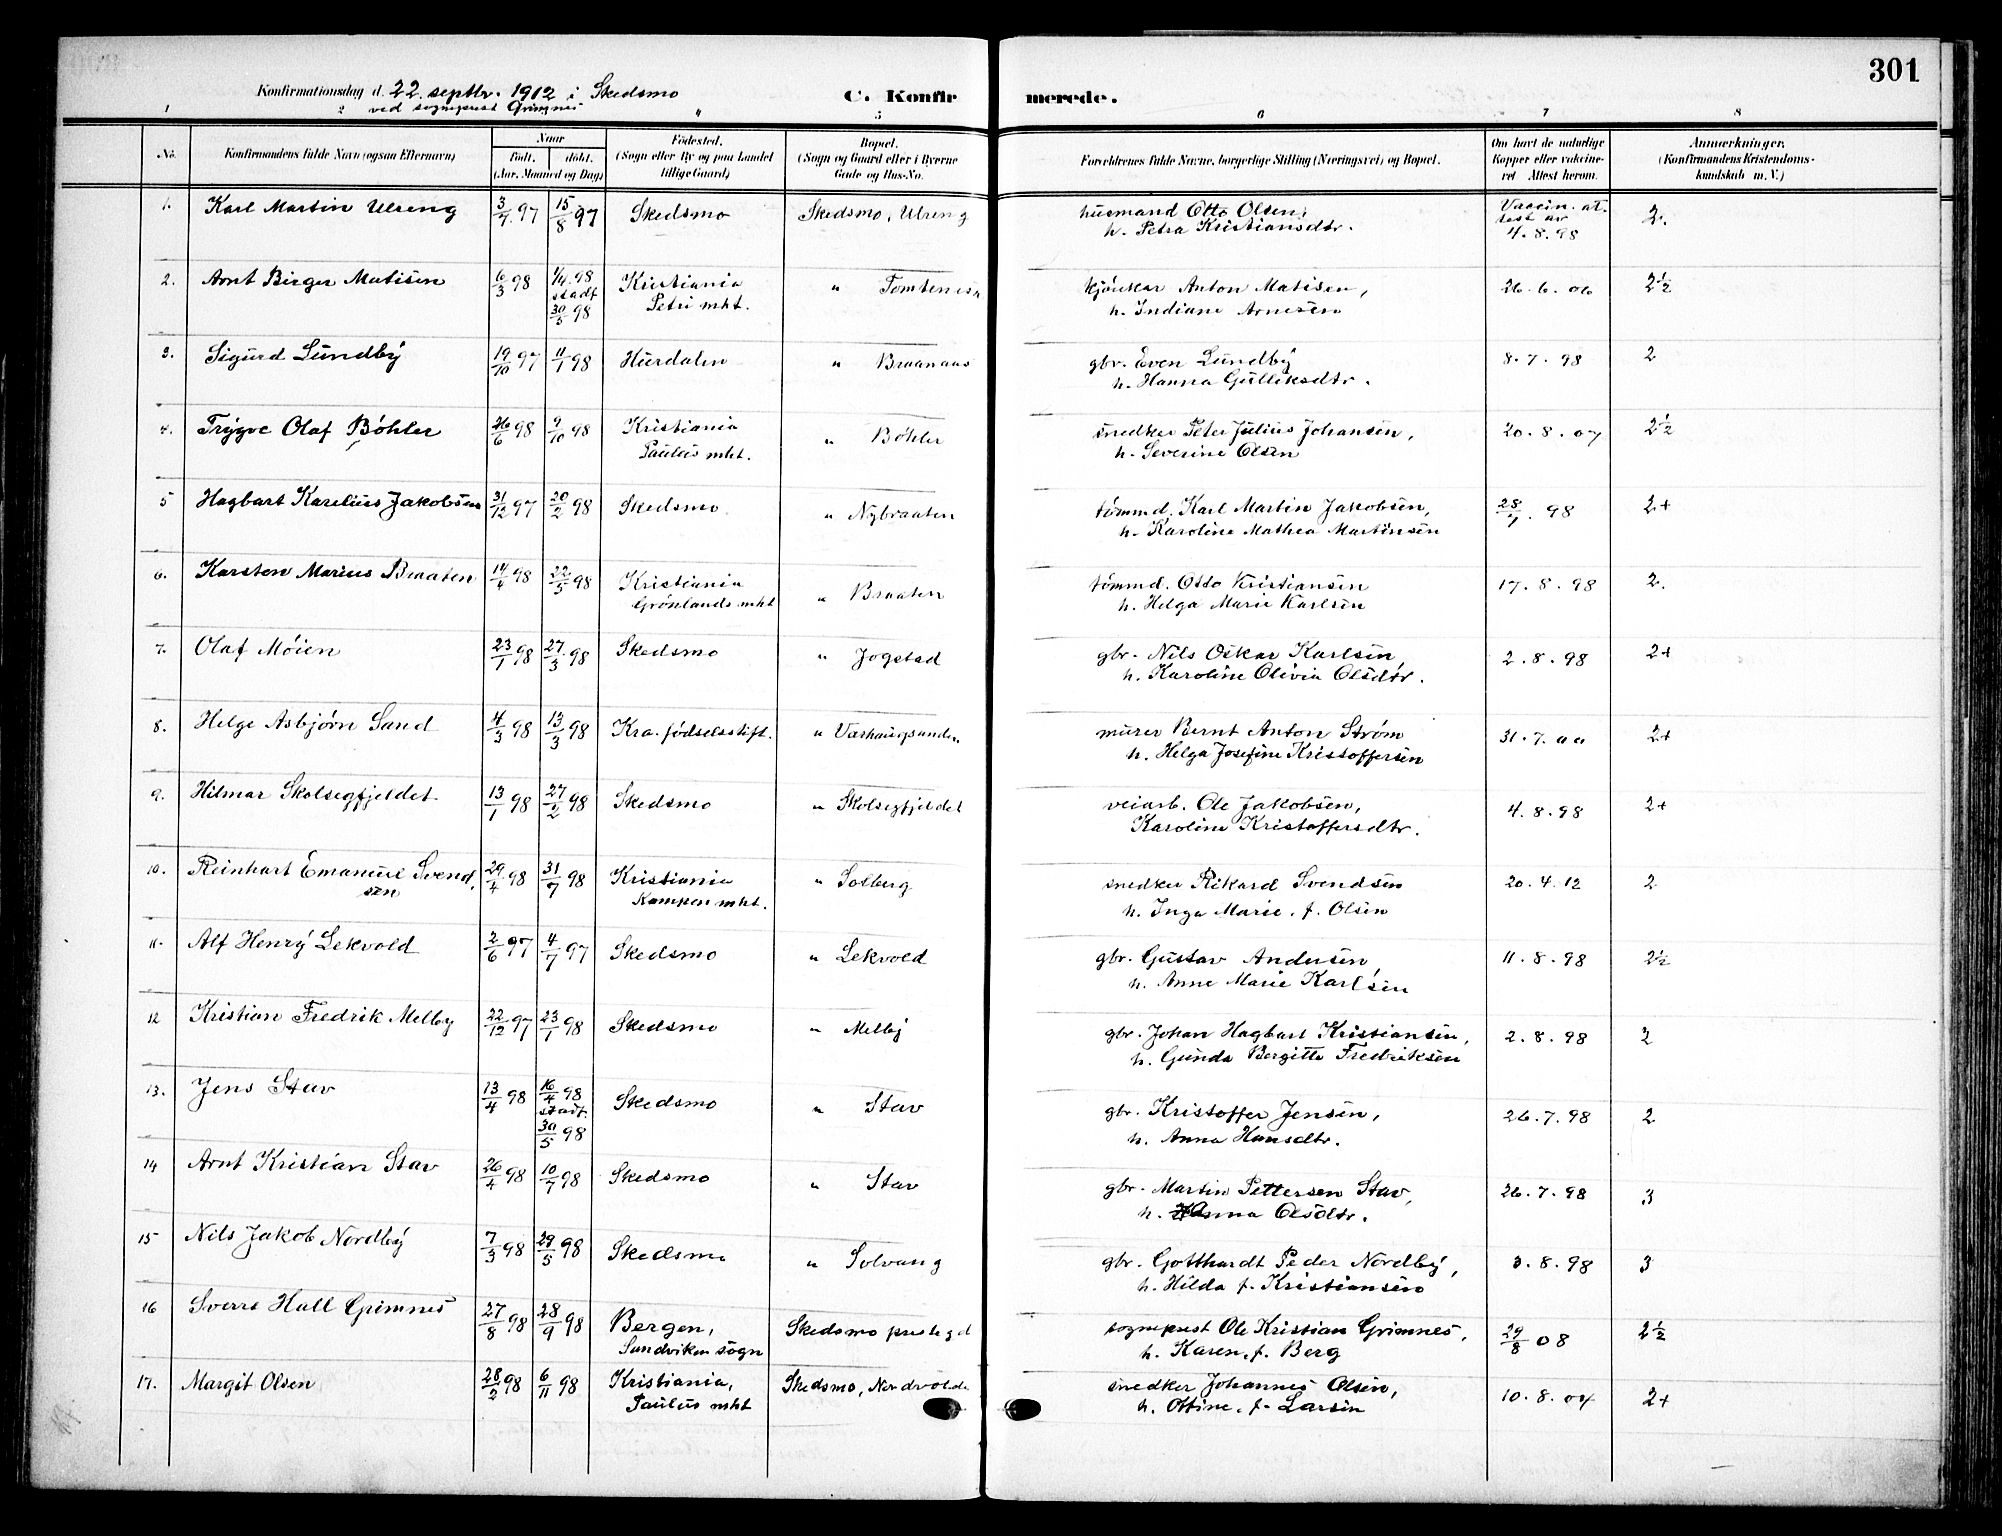 301
Konfirmationsdag d. 22. septbr. 1912 i Skedsmo
ved sogneprest Grimnes
C. Konfirmerede.
1 2 4 5 6 7 8
No. | Konfirmandens fulde Navn (ogsaa Efternavn) | Naar født. døbt. (Aar, Maaned og Dag) | Fødested. (Sogn eller By og paa Landet tillige Gaard) | Bopæl. (Sogn og Gaard eller i Byerne Gade og Hus-No. | Forældrenes fulde Navne, borgerlige Stilling (Næringsvei) og Bopæl. | Om havt de naturlige Kopper eller vaccineret. Attest herom. | Anmærkninger. (Konfirmandens Kristendomskundskab m. V.)
1. Karl Martin Ulreng 3/7 97 15/8 97 Skedsmo Skedsmo, Ulreng husmand Otto Olsen, Vaccin. at- 2.
h. Petra Kristiansdtr. test av
4.8.98
2. Arnt Birger Matisen 6/3 98 1/4 98 Kristiania " kjørekar Anton Matisen, 26.6.06 2½
stadf. Petri mht. h. Indiane Arnesen
30/5 98
3. Sigurd Lundby 19/10 97 11/1 98 Hurdalen " Braanaas gbr. Even Lundby 8.7.98 2
h. Hanna Gulliksdtr.
4. Trygve Olaf Bøhler 26/6 98 9/10 98 Kristiania " Bøhler snedker Peter Julius Johansen, 20.8.07 2½
Paulus mht. h. Severine Olsen
5 Hagbart Karelius Jakobsen 31/12 97 20/2 98 Skedsmo " Nybraaten tømmd. Karl Martin Jakobsen, 28/7. 98 2+
h. Karoline Mathea Martinsen
6. Karsten Marius Braaten 14/4 98 22/5 98 Kristiania " Braaten tømmd. Otto Kristiansen 17.8.98 2.
Grønlands mht h. Helga Marie Karlsen
7. Olaf Møien 23/1 98 27/3 98 Skedsmo " Jogstad gbr. Nils Oskar Karlsen 2.8.98 2+
h. Karoline Olivia Olsdtr.
8. Helge Asbjørn Sand 4/3 98 13/3 98 Kra. fødselsstift. " murer Bernt Anton Strøm 31.7.00 2+
h. Helga Josefine Kristoffersen
9. Hilmar Skolsegfjeldet 13/1 98 27/2 98 Skedsmo " Skolsegfjeldet veiarb. Ole Jakobsen, 4.8.98 2+
Karoline Kristoffersdtr.
10. Reinhart Emanuel Svend- 29/4 98 31/7 98 Kristiania " Solberg snedker Rikard Svendsen 20.4.12 2
sen Kampen mht. h. Inga Marie, f. Olsen
11. Alf Henry Lekvold 2/6 97 4/7 97 Skedsmo " Lekvold gbr. Gustav Andersen, 11.8.98 2½
h. Anne Marie Karlsen
12 Kristian Fredrik Melby 22/12 97 23/1 98 Skedsmo " Melby gbr. Johan Hagbart Kristiansen, 2.8.98 2
h. Gunda Bergitte Fredriksen
13. Jens Stav 13/4 98 16/4 98 Skedsmo " Stav gbr. Kristoffer Jensen, 26.7.98 2
stadf. h. Anna Hansdtr.
30/5 98
14 Arnt Kristian Stav 26/4 98 10/7 98 Skedsmo " Stav gbr. Martin Pettersen Stav, 26.7.98 3
h. Anna Olsdtr.
15 Nils Jakob Nordby 7/3 98 29/5 98 Skedsmo " Solvang gbr. Gotthardt Peder Nordby, 3.8.98 3
h. Hilda f. Kristiansen
16 Sverre Hall Grimnes 27/8 98 28/9 98 Bergen, Skedsmo prestegd sogneprest Ole Kristian Grimnes, 29/8 08 2½
Sandviken sogn h. Karen, f. Berg
17. Margit Olsen 28/2 98 6/11 98 Kristiania, Skedsmo, snedker Johannes Olsen, 10.8.04 2+
Paulus mht h. Ottine, f. Larsen